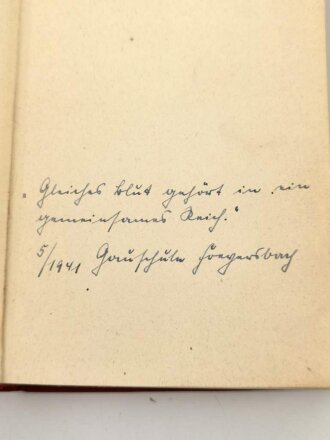 „Gleiches Blut gehört in ein
gemeinsames Reich.“
5/1941 Gauschule